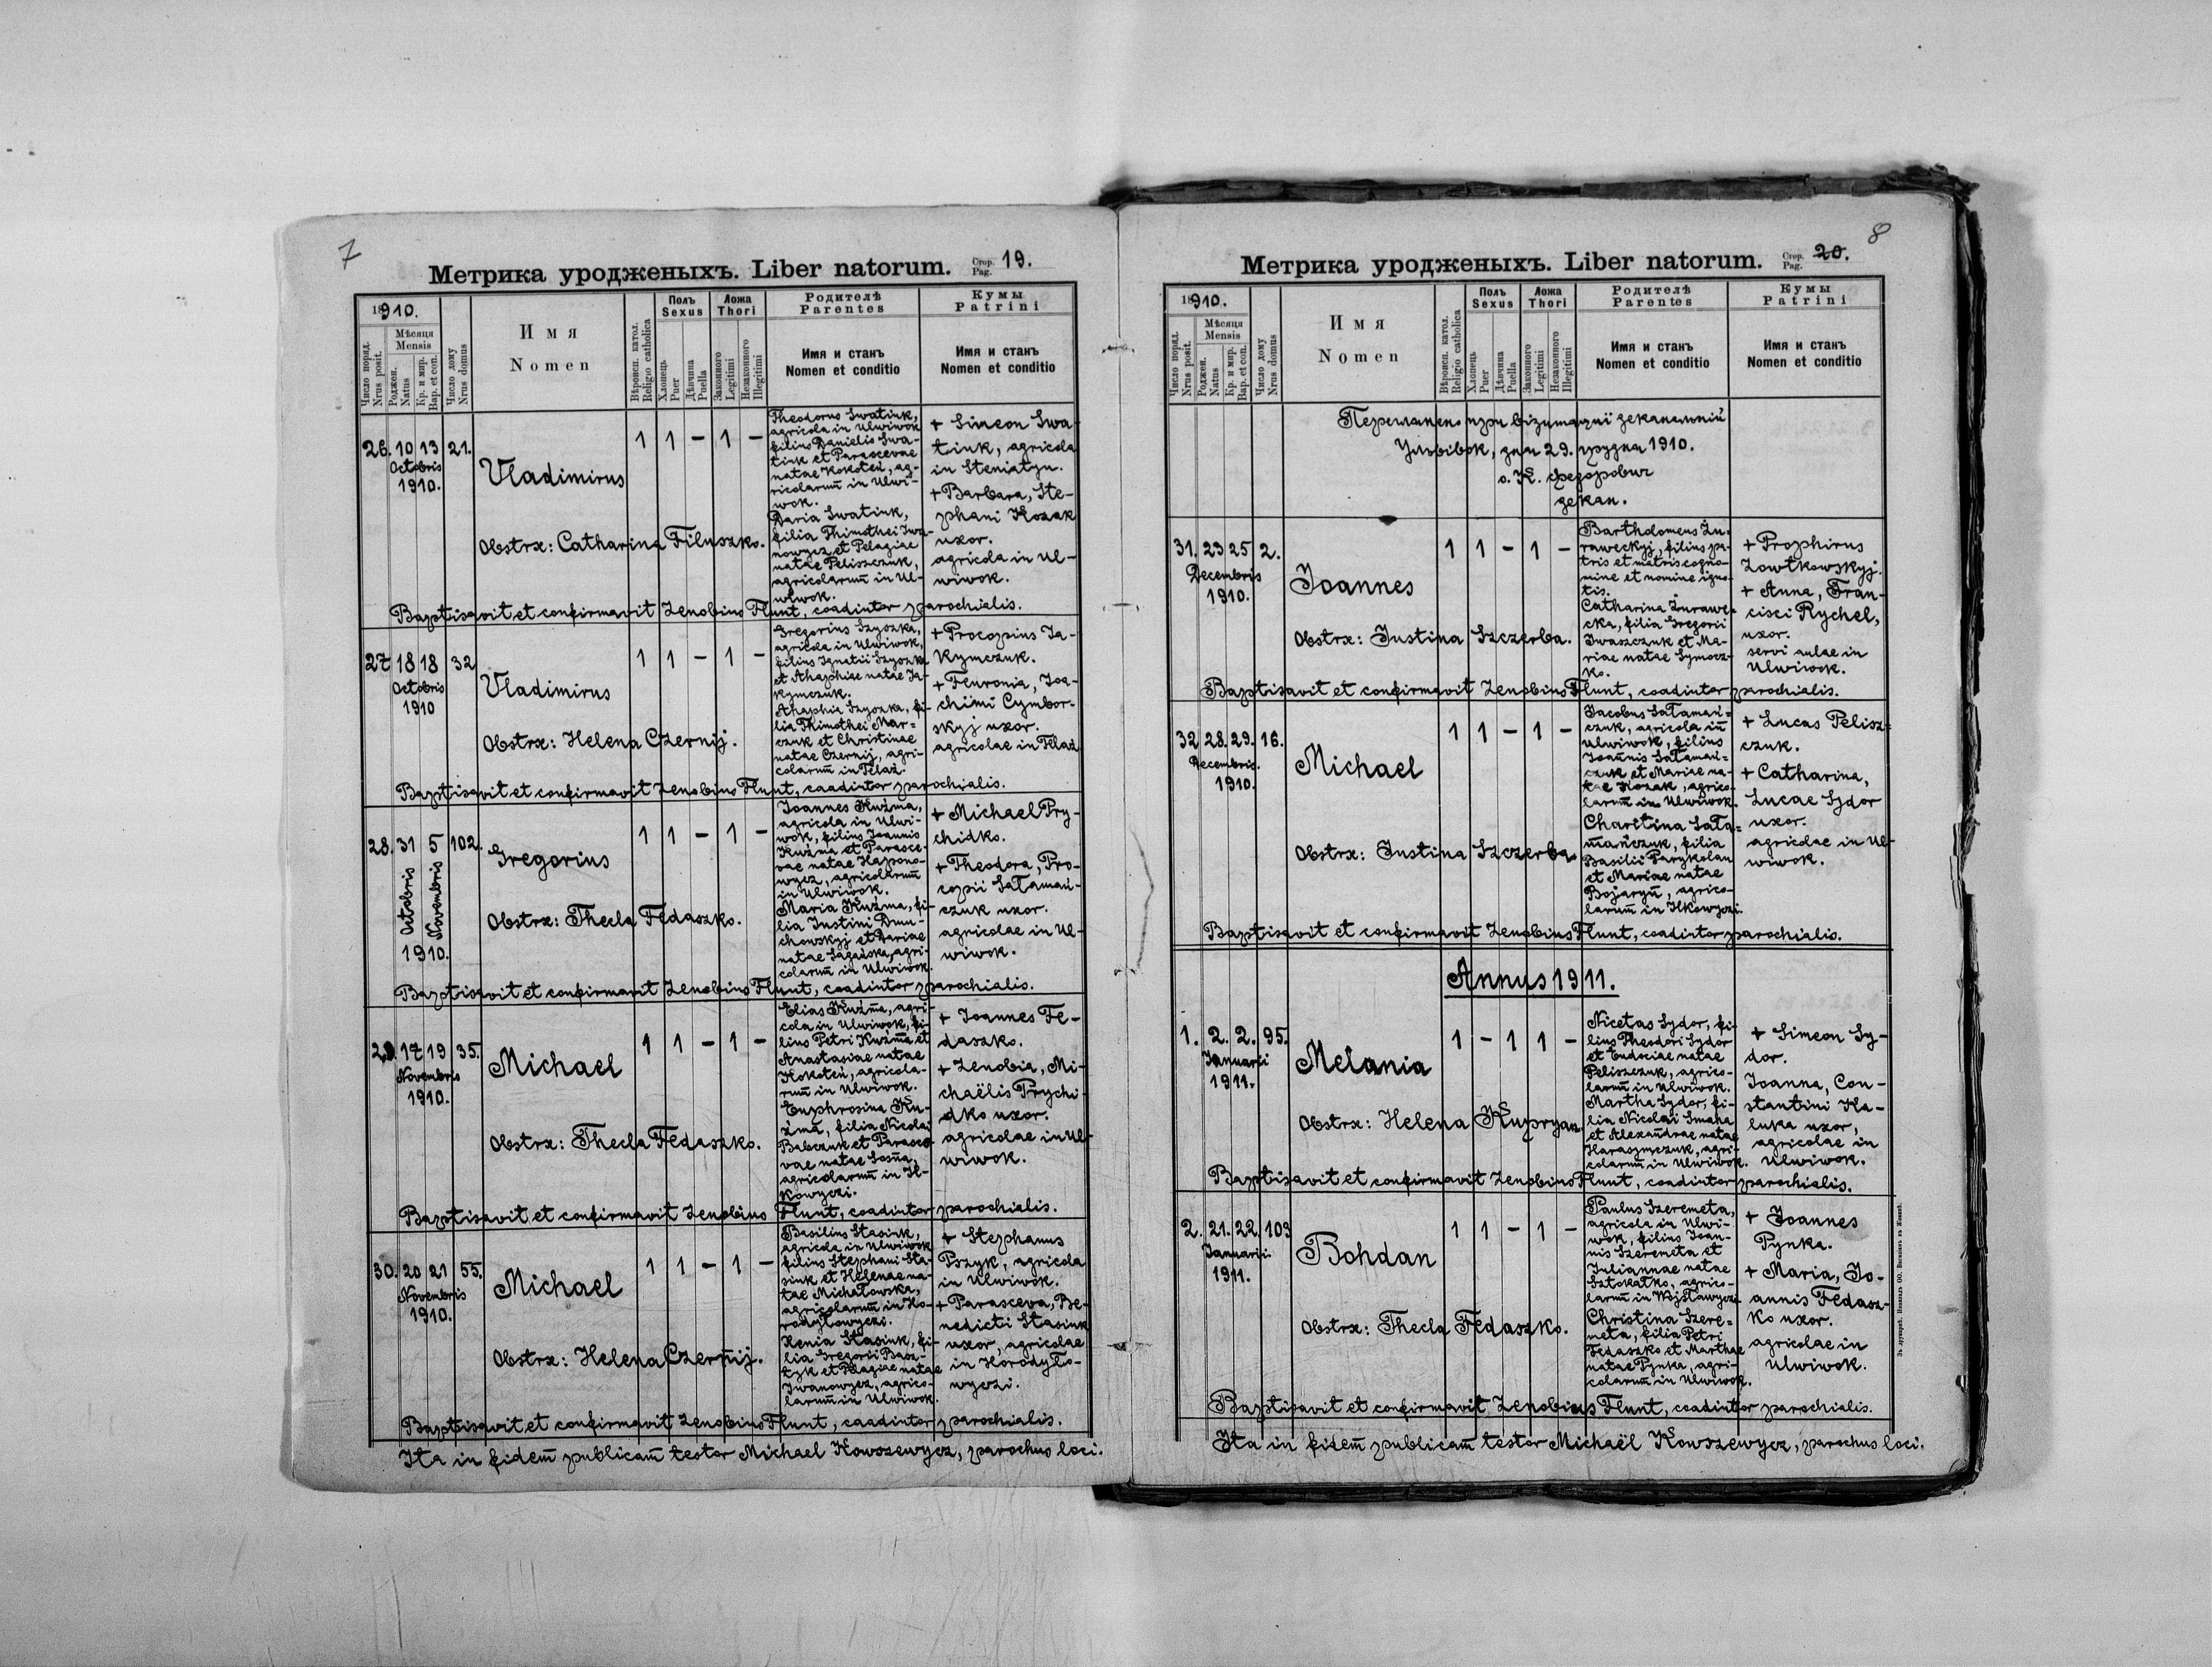 7
Метрика уродженыхъ. Liber natorum.
Стор.
Pag.
19.
1910.
Мѣсяця
Mensis
Число поряд.
Nrus posit.
Роджен.
Natus
Кр. и мир.
Bap. et con.
Число дому
Nrus domus
И м я
Nomen
Вѣроисп. катол.
Religio catholica
Полъ
Sexus
Хлопець
Puer
Дѣвчина
Puella
Ложа
Thori
Законного
Legitimi
Незаконного
Illegitimi
Родителѣ
Parentes
Имя и станъ
Nomen et conditio
Кумы
Patrini
Имя и станъ
Nomen et conditio
26. 10 13 21.
Octobris
1910.
Vladimirus
1 1 - 1 -
Obstrx: Catharina Filuszko.
Theodorus Swatiuk,
agricola in Ulwiwok
filius Danielis Swa-
tiuk et Parascevae
natae Kokoteń, ag-
ricolarum in Ulwi-
wok.
Daria Swatiuk,
filia Thimothei Iwa-
nowycz et Pelagiae
natae Peliszczuk,
agricolarum in Ul-
wiwok.
+ Simeon Swa-
tiuk, agricola
in Steniatyn.
+ Barbara, Ste-
phani Kozak
uxor.
agricola in Ul-
wiwok.
Baptisavit et confirmavit Zenobius Flunt, coadiutor parochialis.
27 18 18 32
Octobris
1910
Vladimirus
1 1 - 1 -
Obstrx: Helena Czernij.
Gregorius Szyszka,
agricola in Ulwiwok,
filius Ignatii Szyszka
et Ahaphiae natae Ja-
kymczuk.
Ahaphia Szyszka, fi-
lia Thimothei Mar=
czuk et Christinae
natae Czernij, agri-
colarum in Telaż.
+ Procopius Ja-
kymczuk.
+ Feuronia, Joa-
chimi Cymbor-
skyj uxor.
agricolae in Telaż
Baptisavit et confirmavit Zenobius Flunt, coadiutor parochialis.
28. 31 5 102.
Octobris
Novembris
1910.
Gregorius
1 1 - 1 -
Obstrx: Thecla Fedaszko.
Joannes Kuźma,
agricola in Ulwi-
wok, filius Joannis
Kuźma et Parasce-
vae natae Hapono-
wycz, agricolarum
in Ulwiwok.
Maria Kuźma, fi-
lia Justini Dmu-
chowskyj et Dariae
natae Sagańska, agri-
colarum in Ulwiwok.
+ Michael Pry-
chidko.
+ Theodora, Pro-
copii Sałamań-
czuk uxor.
agricolae in Ul-
wiwok.
Baptisavit et confirmavit Zenobius Flunt, coadiutor parochialis.
29. 17 19 35.
Novembris
1910.
Michael
1 1 - 1 -
Obstrx: Thecla Fedaszko.
Elias Kuźma, agri-
cola in Ulwiwok, fi-
lius Petri Kuźma et
Anastasiae natae
Kokoteń, agricola-
rum in Ulwiwok.
Euphrosina Ku-
źma, filia Nicolai
Babczuk et Parasce-
vae natae Sosna,
agricolarum in Il-
kowyczi.
+ Joannes Fe-
daszko.
+ Zenobia, Mi-
chaëlis Prychi-
dko uxor.
agricolae in Ul-
wiwok.
Baptisavit et confirmavit Zenobius Flunt, coadiutor parochialis.
30. 20 21 55.
Novembris
1910.
Michael
1 1 - 1 -
Obstrx: Helena Czernij.
Basilius Stasiuk,
agricola in Ulwiwok
filius Stephani Sta-
siuk et Helenae na-
tae Michałowska,
agricolarum in Ho-
rodyłowyczi.
Xenia Stasiuk, fi-
lia Gregorii Basz-
tyk et Pelagiae natae
Iwanowycz, agrico-
larum in Ulwiwok.
+ Stephanus
Pszyk, agricola
in Ulwiwok.
+ Parasceva, Be-
nedicti Stasiuk
uxor, agricolae
in Horodyło-
wyczi.
Baptisavit et confirmavit Zenobius Flunt, coadiutor parochialis.
Ita in fidem publicam testor Michael Kowszewycz, parochus loci.
8
Метрика уродженыхъ. Liber natorum.
Стор.
Pag.
20.
1910.
Мѣсяця
Mensis
Число поряд.
Nrus posit.
Роджен.
Natus
Кр. и мир.
Bap. et con.
Число дому
Nrus domus
И м я
Nomen
Вѣроисп. катол.
Religio catholica
Полъ
Sexus
Хлопець
Puer
Дѣвчина
Puella
Ложа
Thori
Законного
Legitimi
Незаконного
Illegitimi
Родителѣ
Parentes
Имя и станъ
Nomen et conditio
Кумы
Patrini
Имя и станъ
Nomen et conditio
Переглянено при візитациї деканальнїй
Ульвівок, дня 29. грудня 1910.
о. К. Федорович
декан.
31. 23 25 2.
Decembris
1910.
Joannes
1 1 - 1 -
Obstrx: Justina Szczerba.
Bartholomeus Żu=
raweckyj, filius pa-
tris et matris cogno-
mine et nomine igno-
tis.
Catharina Żurawe-
cka, filia Gregorii
Iwaszczuk et Ma-
riae natae Symocz-
ko.
+ Prophirus
Zowtkowskyj.
+ Anna, Fran-
cisci Rychel,
uxor.
servi aulae in
Ulwiwok.
Baptisavit et confirmavit Zenobius Flunt, coadiutor parochialis.
32 28. 29. 16.
Decembris.
1910.
Michael
1 1 - 1 -
Obstrx: Justina Szczerba.
Jacobus Sałamań=
czuk, agricola in
Ulwiwok, filius
Joannis Sałamań-
czuk et Mariae na-
tae Kozak, agrico-
larum in Ulwiwok.
Charitina Sała=
mańczuk, filia
Basilii Parykolan
et Mariae natae
Bojaryn, agrico-
larum in Ilkowyczi.
+ Lucas Pelisz=
czuk.
+ Catharina,
Lucae Sydor
uxor.
agricolae in Ul-
wiwok.
Baptisavit et confirmavit Zenobius Flunt, coadiutor parochialis.
Annus 1911.
1. 2. 2. 95.
Januarii
1911.
Melania
1 - 1 1 -
Obstrx: Helena Kupryan.
Nicetas Sydor, fi-
lius Theodori Sydor
et Eudociae natae
Peliszczuk, agrico-
larum in Ulwiwok.
Martha Sydor, fi-
lia Nicolai Smaha
et Alexandrae natae
Harasymczuk, agri-
colarum in Ulwiwok.
+ Simeon Sy-
dor.
Joanna, Con-
stantini Ka-
luka uxor,
agricolae in
Ulwiwok.
Baptisavit et confirmavit Zenobius Flunt, coadiutor parochialis.
2. 21. 22. 103
Januarii.
1911.
Bohdan
1 1 - 1 -
Obstrx: Thecla Fedaszko.
Paulus Szeremeta,
agricola in Ulwi-
wok, filius Joan-
nis Szeremeta et
Juliannae natae
Sztokałko, agrico-
larum in Wojsławyczi.
Christina Szere=
meta, filia Petri
Fedaszko et Marthae
natae Pynka, agri-
colarum in Ulwiwok.
+ Joannes
Pynka.
+ Maria, Jo-
annis Fedasz-
ko uxor.
agricolae in
Ulwiwok.
Baptisavit et confirmavit Zenobius Flunt, coadiutor parochialis.
Ita in fidem publicam testor Michaël Kowszewycz, parochus loci.